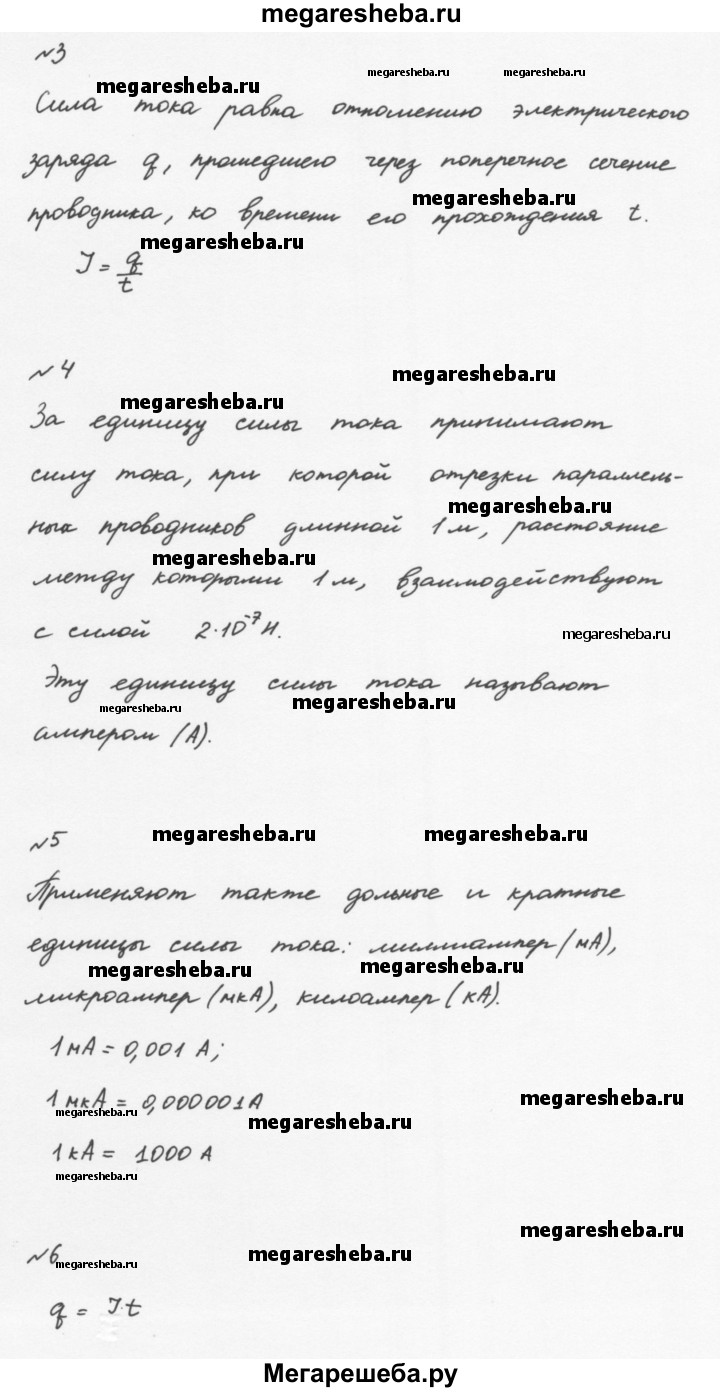 megaresheba.ru
№3
megaresheba.ru megaresheba.ru megaresheba.ru
Сила тока равна отношению электрического
заряда q, прошедшего через поперечное сечение
megaresheba.ru
проводника, ко времени его прохождения t.
megaresheba.ru
I = q/t
№4
megaresheba.ru
megaresheba.ru
За единицу силы тока принимают
силу тока, при которой отрезки параллель-
megaresheba.ru
ных проводников длинной 1 м, расстояние
megaresheba.ru
между которыми 1 м, взаимодействуют
с силой 2·10⁻⁷ Н.
megaresheba.ru
Эту единицу силы тока называют
megaresheba.ru megaresheba.ru
ампером (А).
№5
megaresheba.ru megaresheba.ru
Применяют также дольные и кратные
единицы силы тока: миллиампер (мА),
megaresheba.ru megaresheba.ru
микроампер (мкА), килоампер (кА).
1 мА = 0,001 А;
1 мкА = 0,000001 А
megaresheba.ru
megaresheba.ru megaresheba.ru
1 кА = 1000 А
megaresheba.ru
megaresheba.ru
№6
megaresheba.ru megaresheba.ru
q = I·t
Мегарешеба.ру